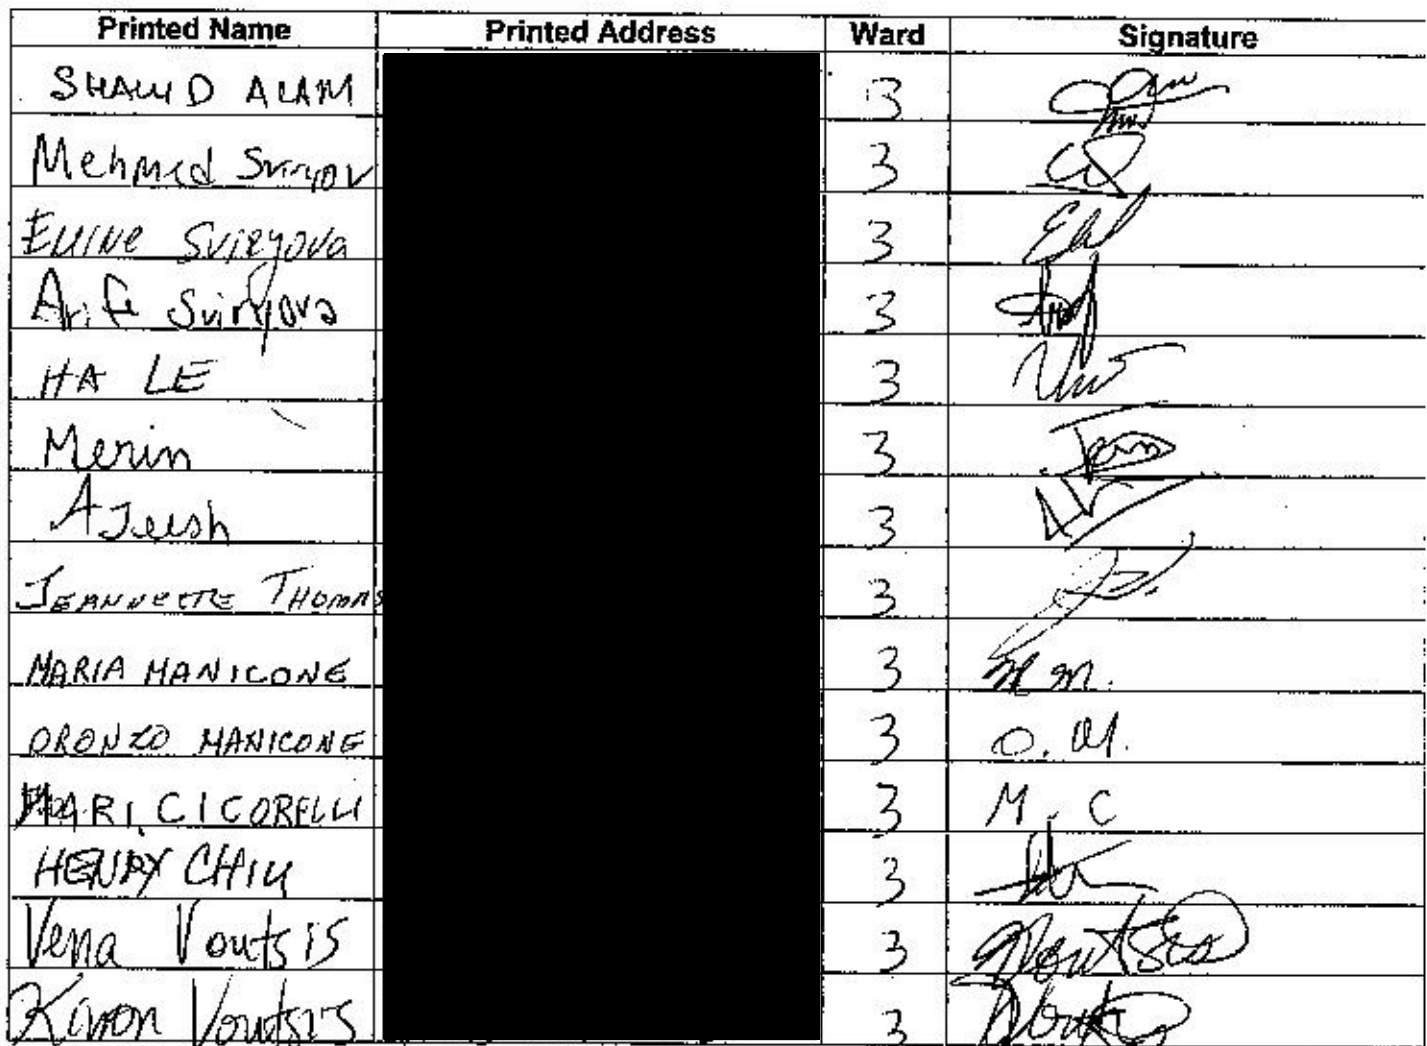 Printed Name Printed Address Ward Signature
SHAHID ALAM 3
Mehmed Sviryov 3
EMINE SVIRYOVA 3
Arife Sviryova 3
HA LE 3
Merin 3
AJeesh 3
JEANNETTE THOMAS 3
MARIA MANICONE 3 M.M.
ORONZO MANICONE 3 O.M.
MARI, CICORELLI 3 M.C
HENRY CHIU 3
Vena Voutsis 3 Voutsis
Voutsis 3